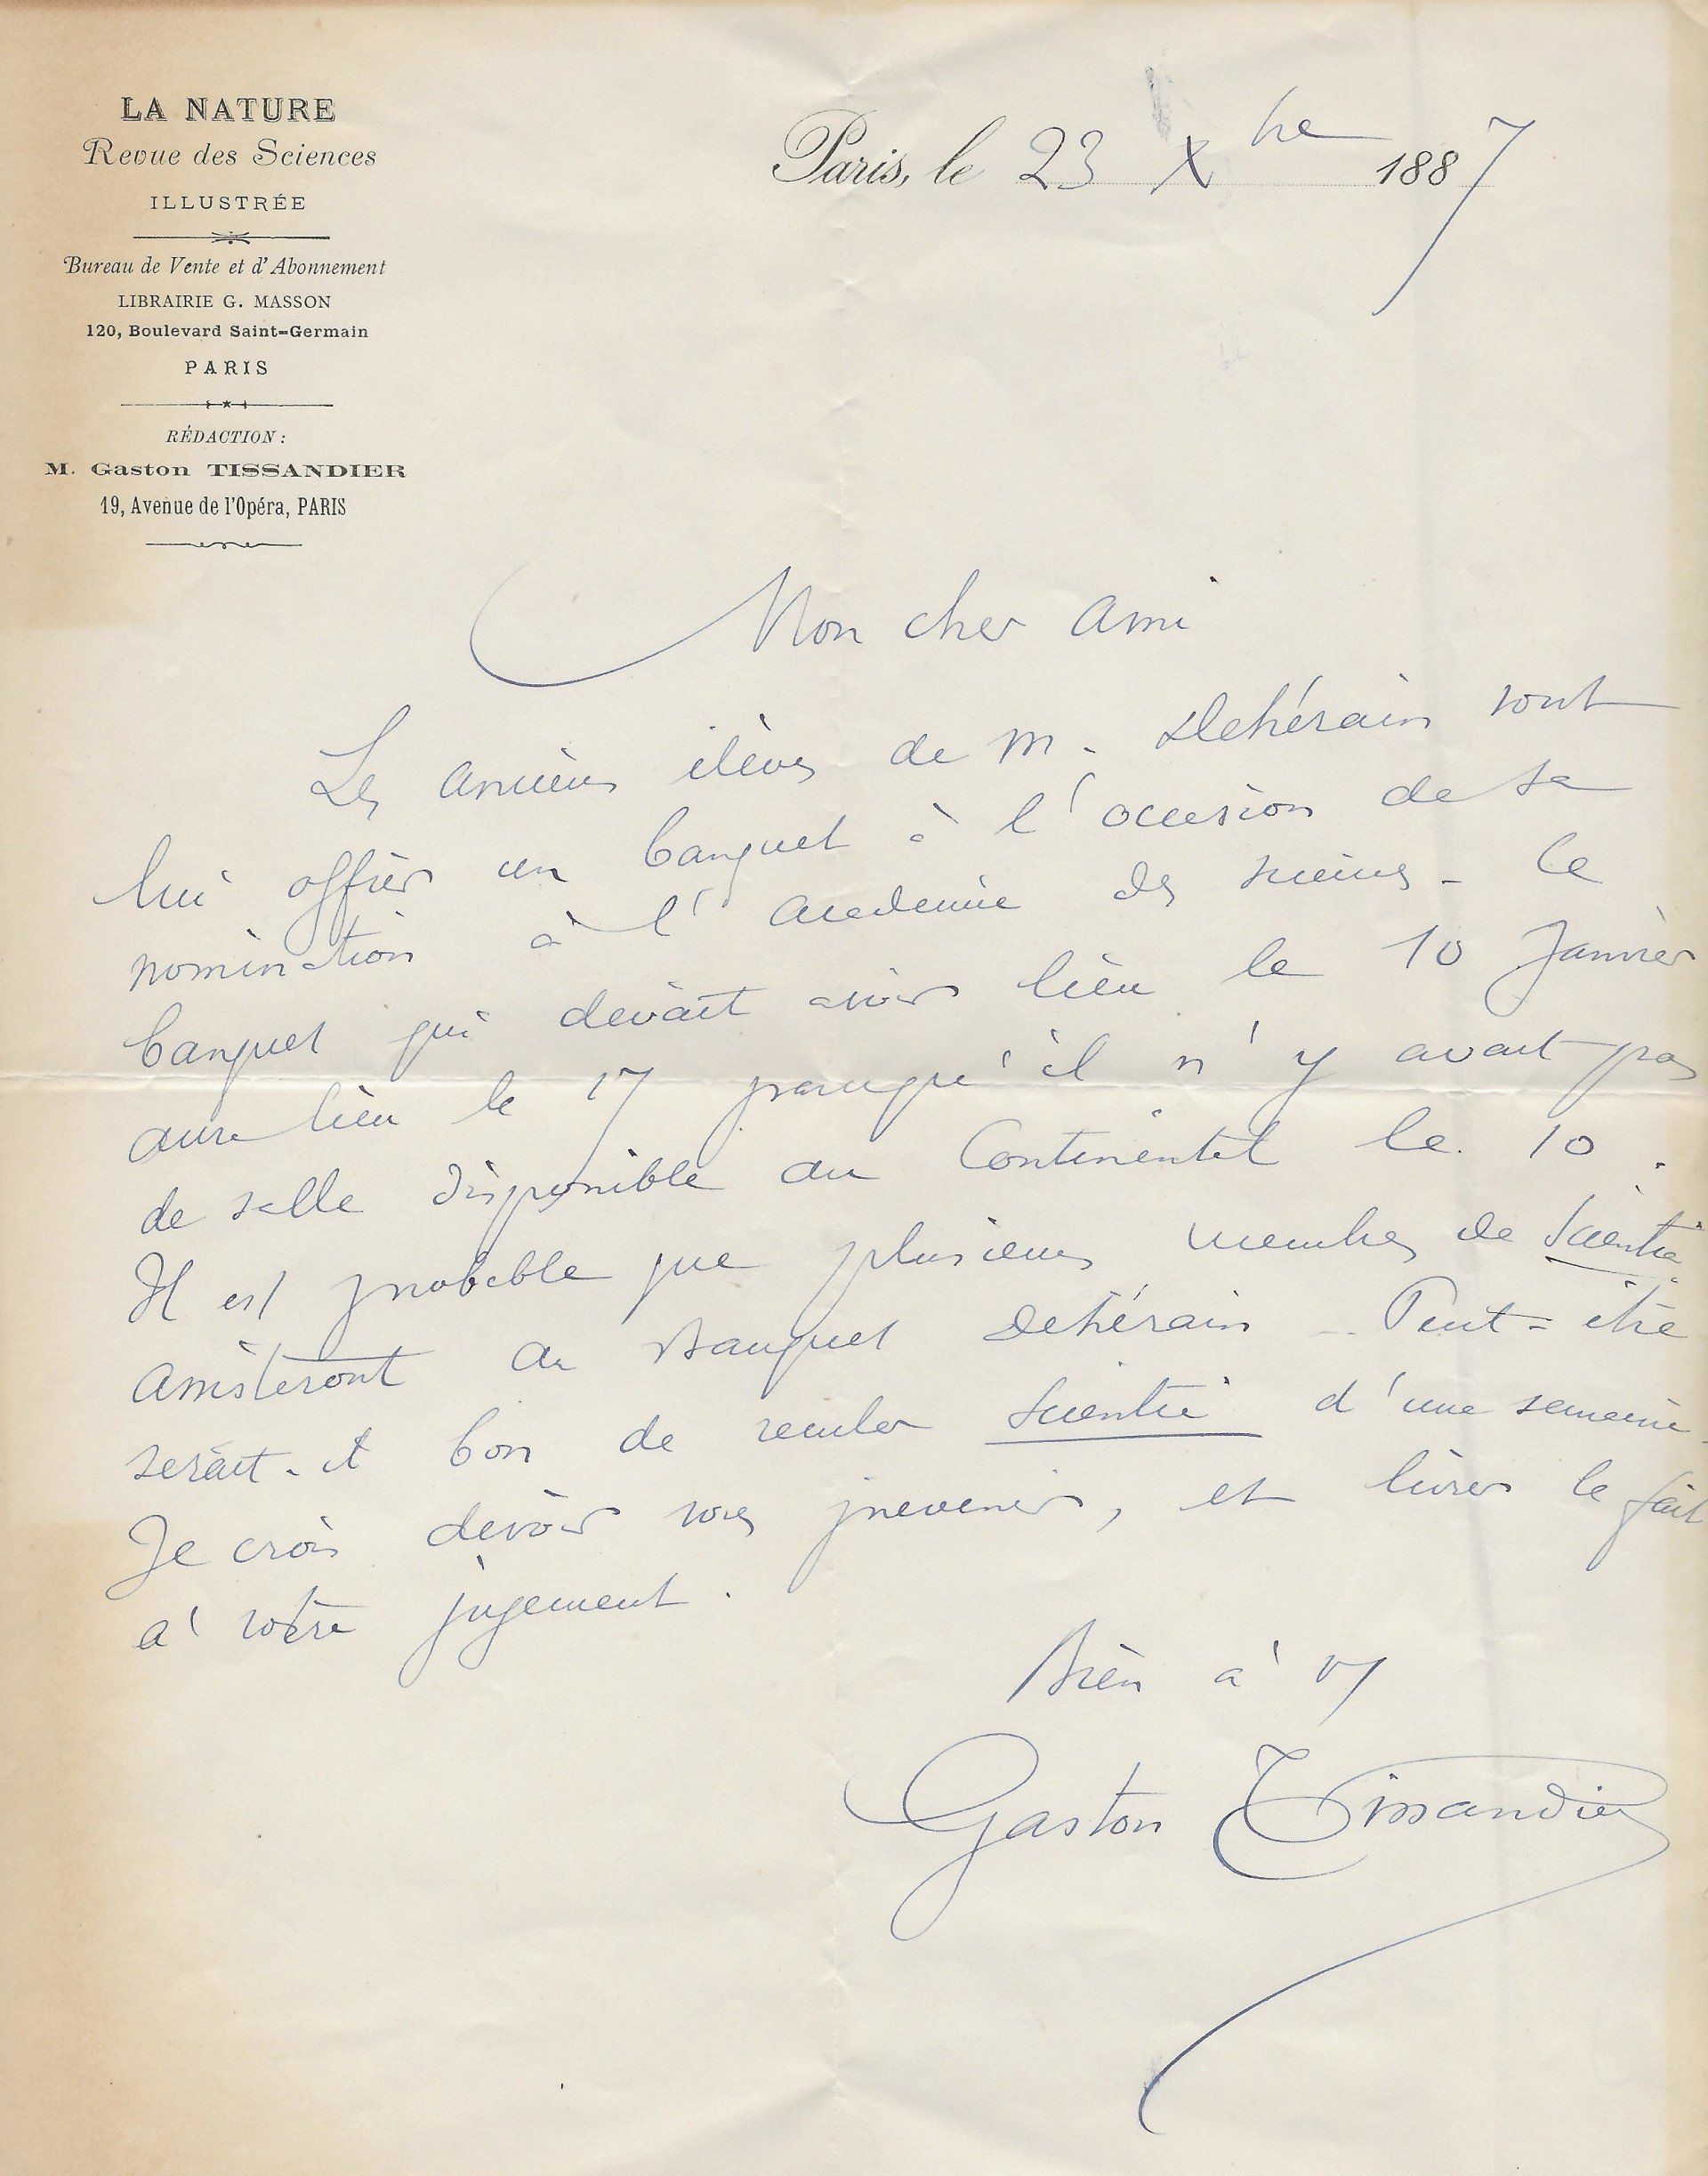 LA NATURE
Revue des Sciences
ILLUSTRÉE
Bureau de Vente et d'Abonnement
LIBRAIRIE G. MASSON
120, Boulevard Saint-Germain
PARIS
RÉDACTION :
M. Gaston TISSANDIER
19, Avenue de l'Opéra, PARIS
Paris, le 23 Xbre 1887
Mon cher ami
Les anciens élèves de M. Dehérain vont
lui offrir un banquet à l'occasion de sa
nomination à l'académie des sciences - Ce
banquet qui devait avoir lieu le 10 Janvier
aura lieu le 17 parcequ'il n'y avait pas
de salle disponible au Continental le 10.
Il est probable que plusieurs membres de Scientia
assisteront au Banquet Dehérain - Peut-être
serait-il bon de reculer Scientia d'une semaine.
Je crois devoir vous prevenir, et livrer le fait
à votre jugement.
Bien à vs
Gaston Tissandier